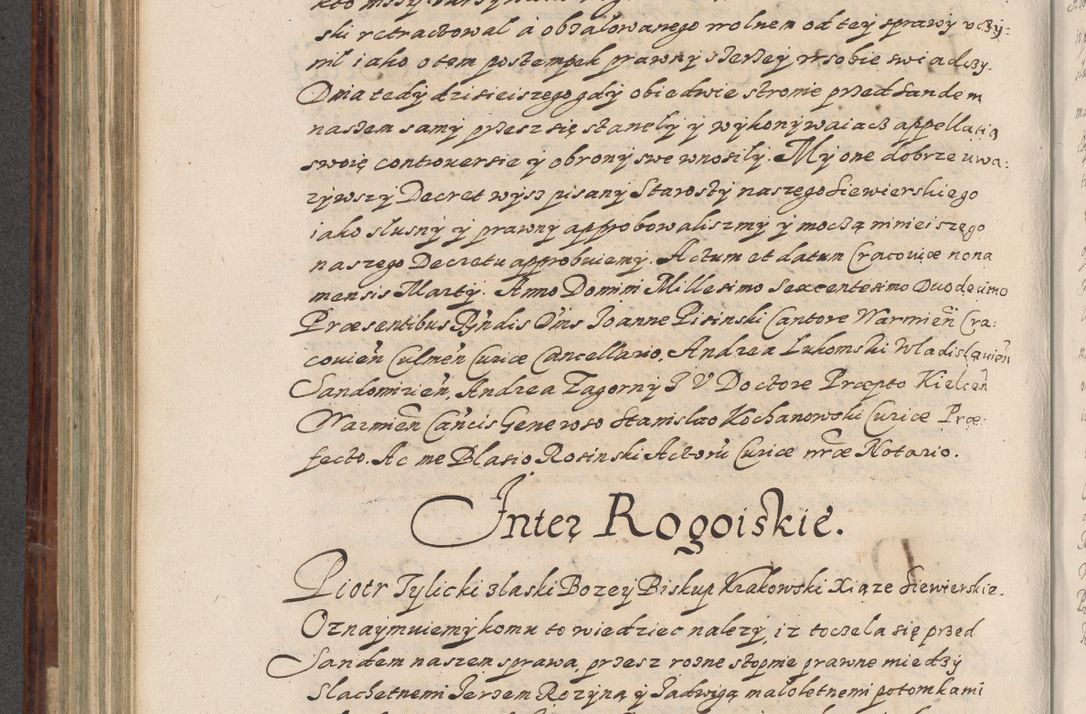 ski retractował a obżałowanego wolnem od tey sprawy uczy:
nił iako o tem postempek prawny szerzey w sobie swiadczy.
Dnia tedy dzisieiszego gdy obiedwie stronie przed Sandem
naszem samy przez się stanęły y wykonywaiacz appellatią
swoię controuersie y obrony swe wnosiły. My one dobrze uwa:
żywszy Decret wysz pisany Starosty naszego Siewierskiego
iako slusny y prawny approbowaliszmy y moczą ninieiszego
naszego Decretu approbuiemy. Actum et datum Cracouiæ nona
mensis Martij. Anno Domini Millesimo Sexcentesimo Duodecimo
Præsentibus Rṇdis Dn̄is Joanne Pisinski Cantore Warmien̄ Cra:
couien̄ Culmen̄ Curiæ Cancellario. Andrea Lukomski Wladislauien̄
Sandomirien̄, Andrea Zagorny J V Doctore Præpto Kielcen̄
Warmien̄ Can̄cis Generoso Stanislao Kochanowski Curiæ Præ:
fecto. Ac me Blasio Rosinski Actorū Curiæ nr̄æ Notario.
Inter Rogoiskie.
Piotr Tylicki z łaski Bozey Biskup Krakowski Xiąze Siewierskie.
Oznaymuiemy komu to wiedziec nalezy, iz toczeła się przed
Sandem naszem sprawa, przez rozne stopnie prawne miedzy
Slachetnemi Jerzem Rozyną y Jadwigą małoletnemi potomkami